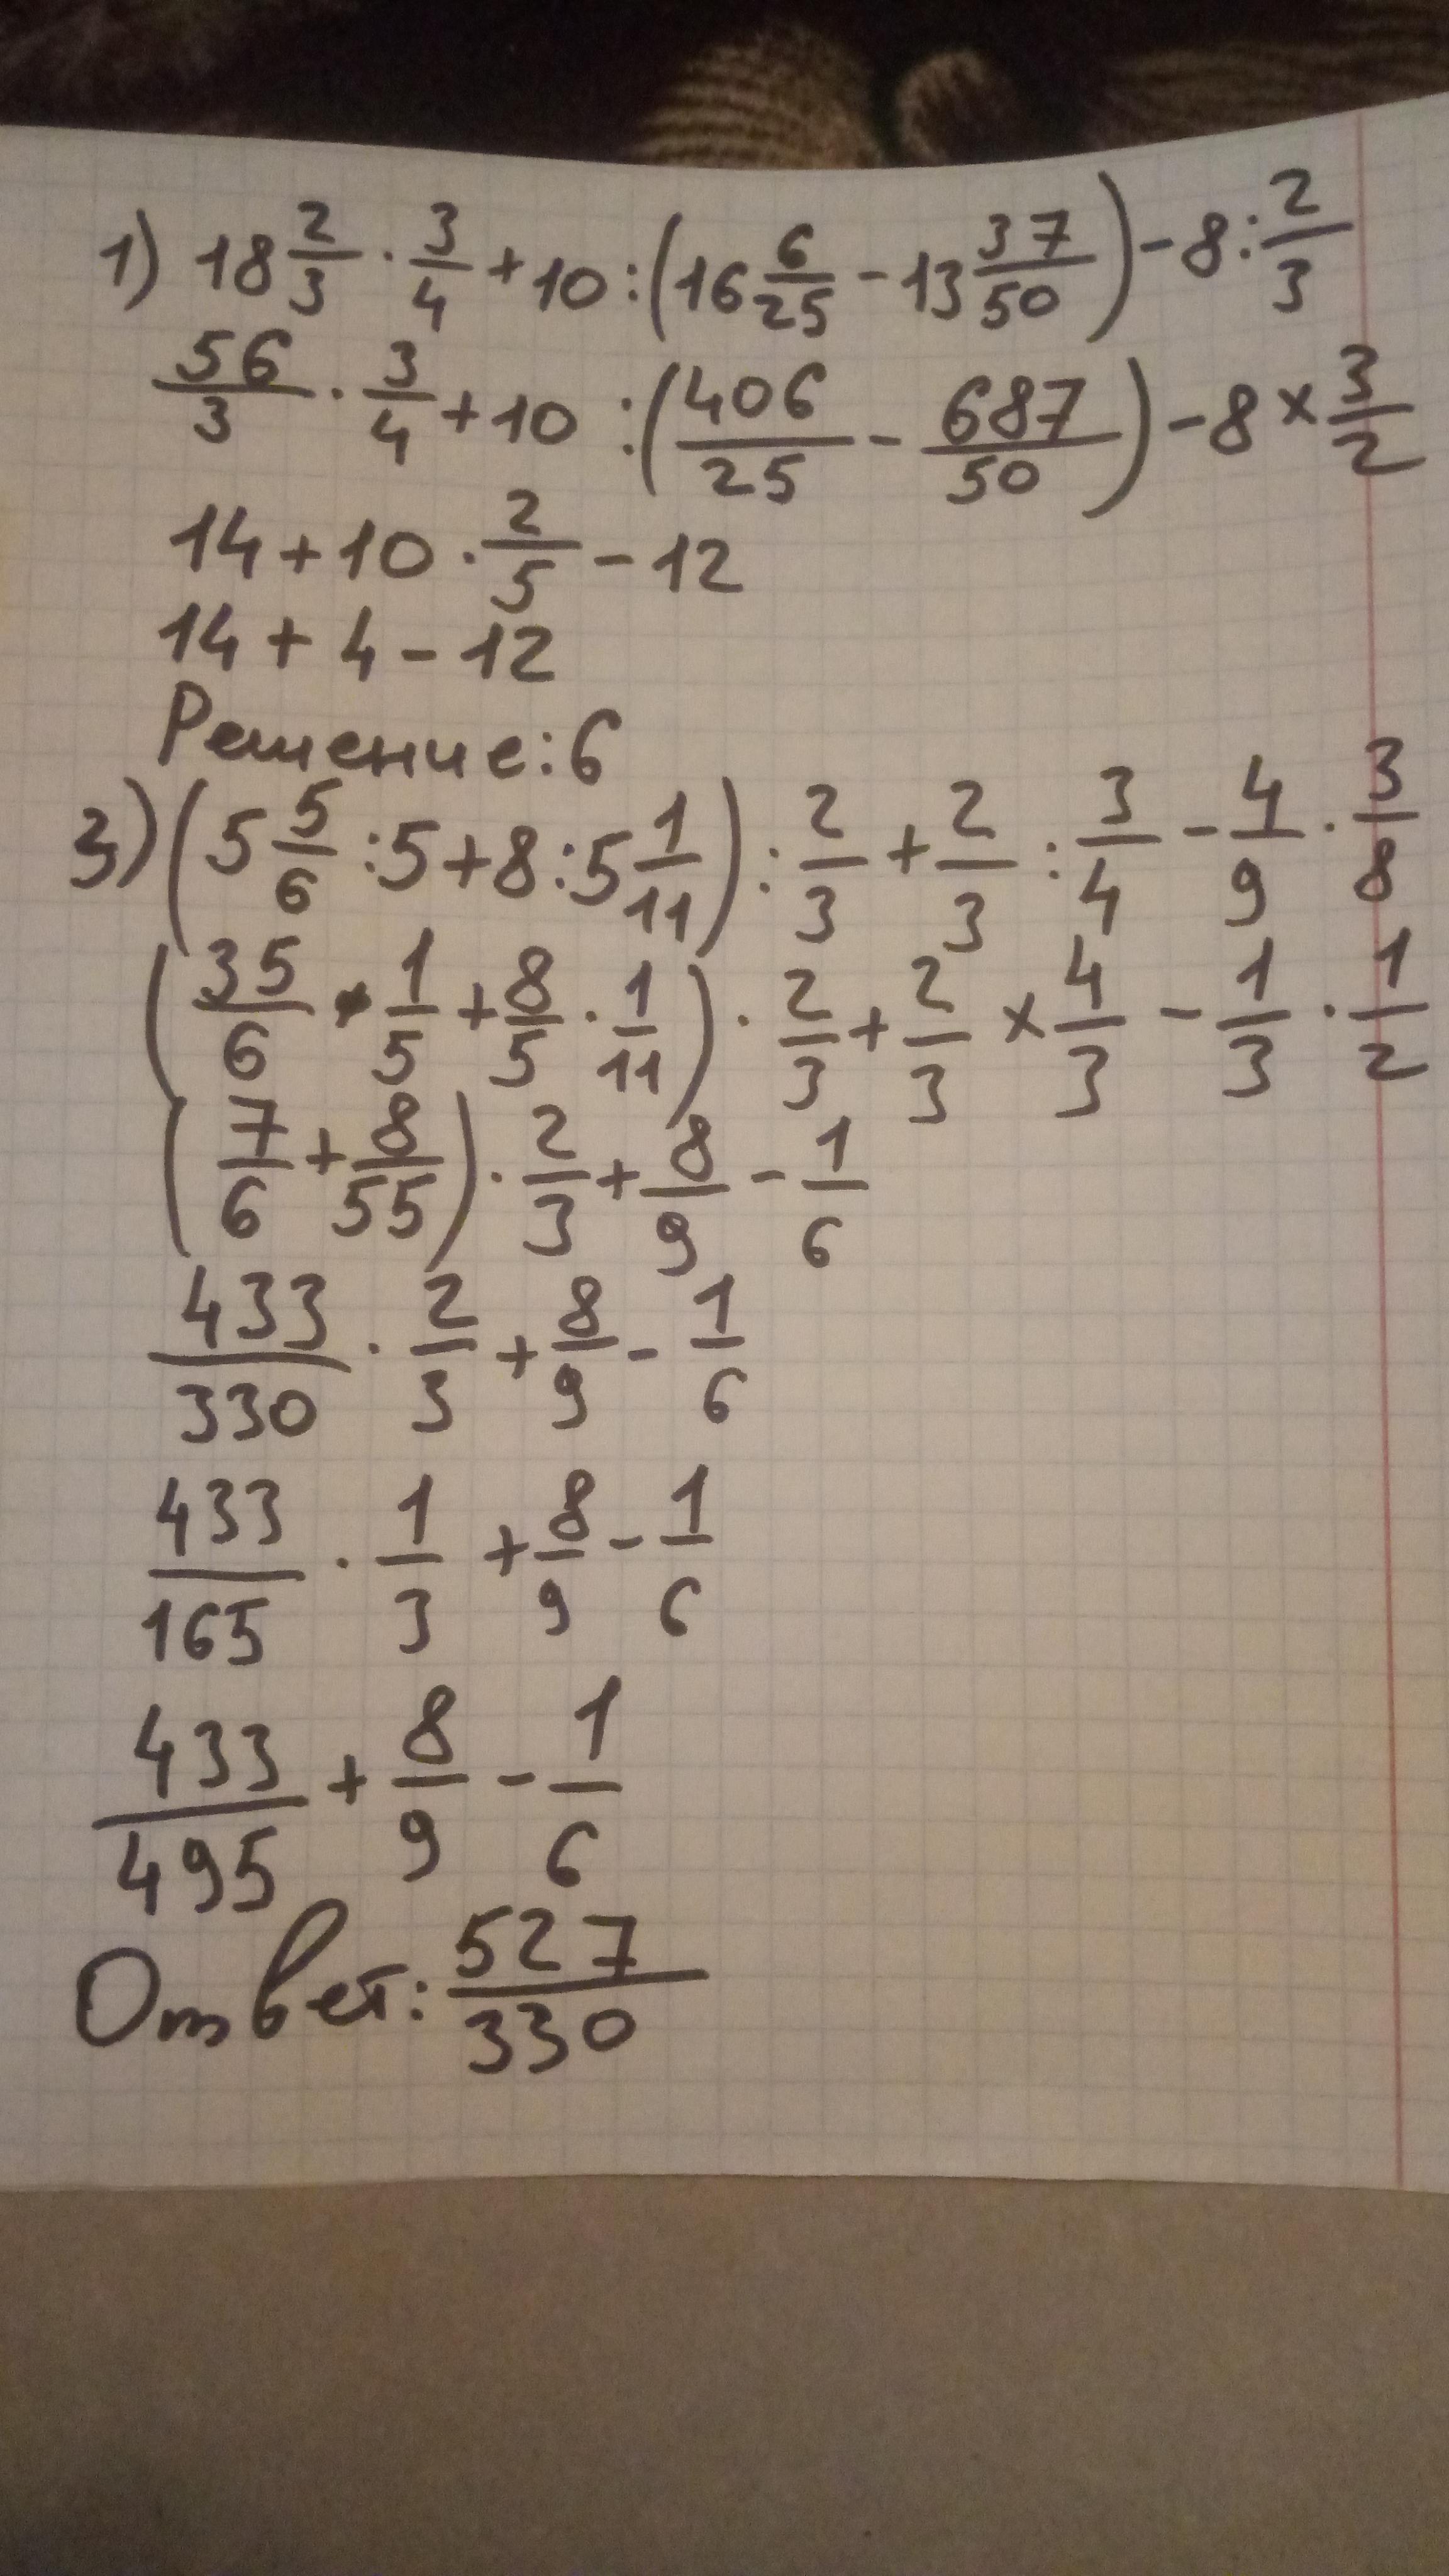 1) 18 2/3 · 3/4 + 10 : (16 6/25 - 13 37/50) - 8 : 2/3
56/3 · 3/4 + 10 : (406/25 - 687/50) - 8 × 3/2
14 + 10 · 2/5 - 12
14 + 4 - 12
Решение: 6
3) (5 5/6 : 5 + 8 : 5 1/11) : 2/3 + 2/3 : 3/4 - 4/9 · 3/8
(35/6 · 1/5 + 8/5 · 1/11) · 2/3 + 2/3 × 4/3 - 1/3 · 1/2
(7/6 + 8/55) · 2/3 + 8/9 - 1/6
433/330 · 2/3 + 8/9 - 1/6
433/165 · 1/3 + 8/9 - 1/6
433/495 + 8/9 - 1/6
Ответ: 527/330